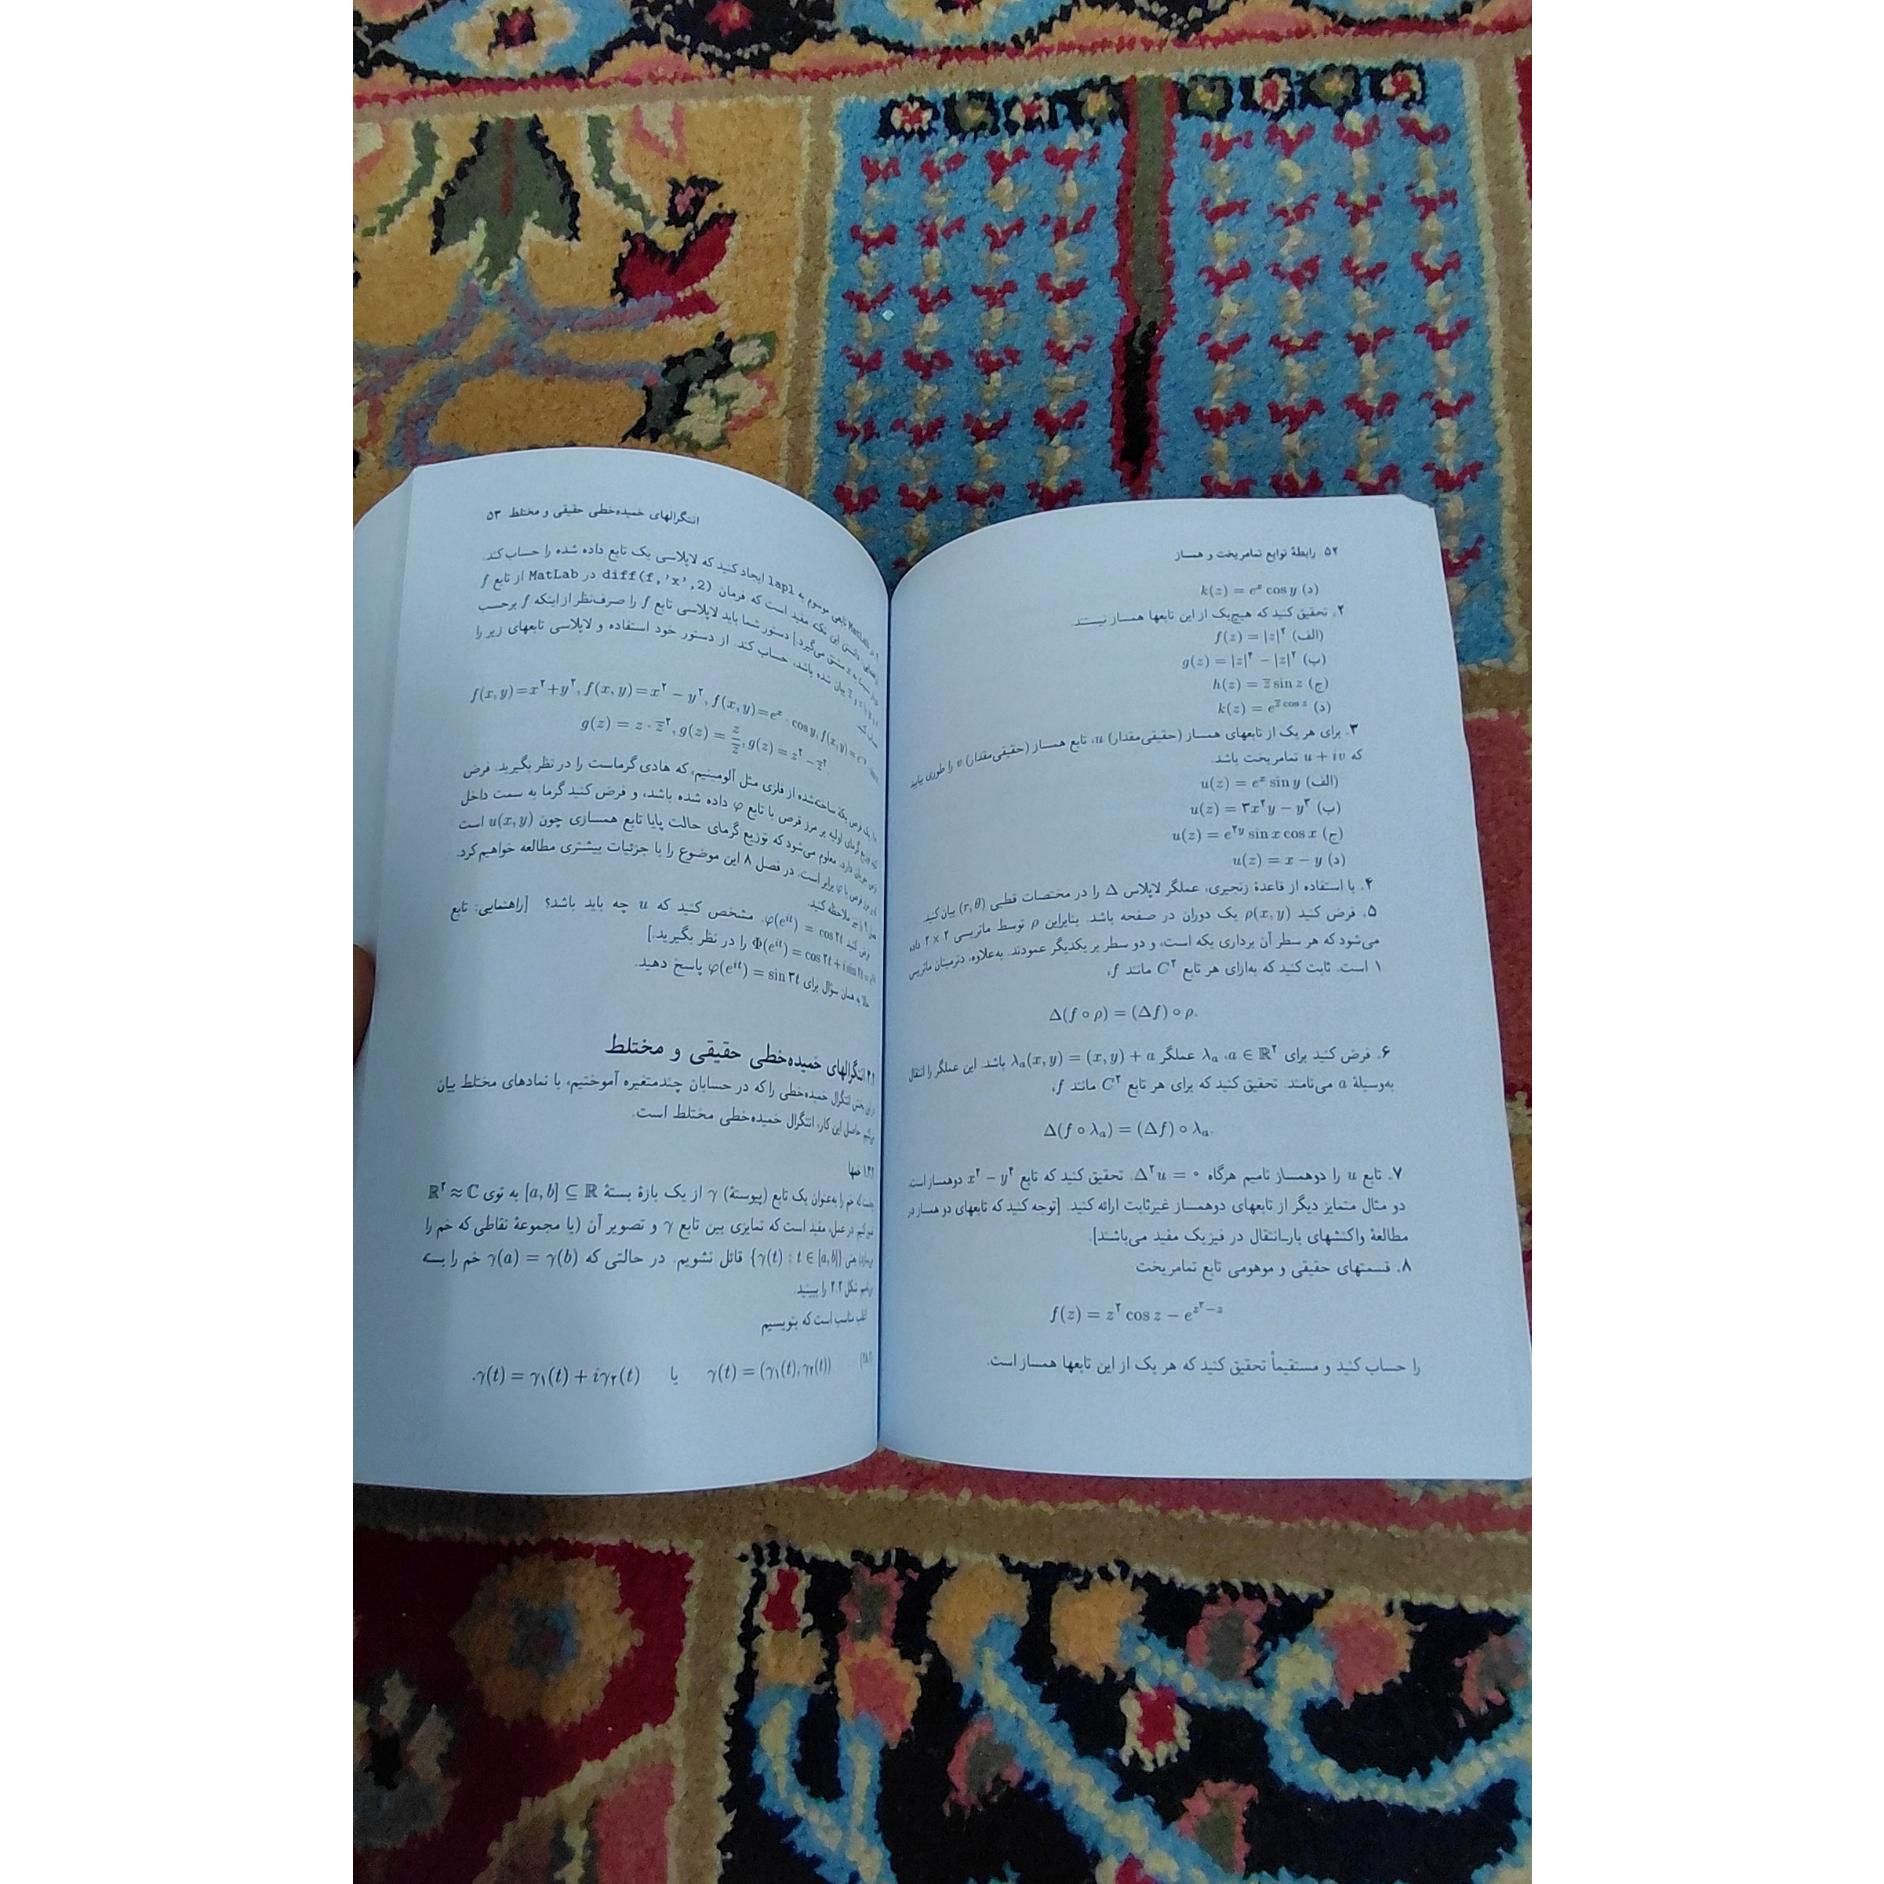 ۵۲ رابطهٔ توابع تمامریخت و همساز
(د) k(z) = eˣ cos y
۲. تحقیق کنید که هیچ‌یک از این تابعها همساز نیستند.
(الف) f(z) = |z|²
(ب) g(z) = |z|⁴ − |z|²
(ج) h(z) = z̅ sin z
(د) k(z) = e^{z̅ cos z}
۳. برای هر یک از تابعهای همساز (حقیقی‌مقدار) u، تابع همساز (حقیقی‌مقدار) v را طوری بیابید
که u + iv تمامریخت باشد.
(الف) u(z) = eˣ sin y
(ب) u(z) = ۳x²y − y³
(ج) u(z) = e^{۲y} sin x cos x
(د) u(z) = x − y
۴. با استفاده از قاعدهٔ زنجیری، عملگر لاپلاس Δ را در مختصات قطبی (r, θ) بیان کنید.
۵. فرض کنید ρ(x, y) یک دوران در صفحه باشد. بنابراین ρ توسط ماتریسی ۲ × ۲ داده
می‌شود که هر سطر آن برداری یکه است، و دو سطر بر یکدیگر عمودند. به‌علاوه، دترمینان ماتریس
۱ است. ثابت کنید که به‌ازای هر تابع C² مانند f،
Δ(f ∘ ρ) = (Δf) ∘ ρ.
۶. فرض کنید برای a ∈ ℝ²، λₐ عملگر λₐ(x, y) = (x, y) + a باشد. این عملگر را انتقال
به‌وسیلهٔ a می‌نامند. تحقیق کنید که برای هر تابع C² مانند f،
Δ(f ∘ λₐ) = (Δf) ∘ λₐ.
۷. تابع u را دوهمساز نامیم هرگاه Δ²u = ۰. تحقیق کنید که تابع x⁴ − y⁴ دوهمساز است.
دو مثال متمایز دیگر از تابعهای دوهمساز غیرثابت ارائه کنید. [توجه کنید که تابعهای دوهمساز در
مطالعهٔ واکنشهای بار-انتقال در فیزیک مفید می‌باشند].
۸. قسمتهای حقیقی و موهومی تابع تمامریخت
f(z) = z² cos z − e^{z³−z}
را حساب کنید و مستقیماً تحقیق کنید که هر یک از این تابعها همساز است.
انتگرالهای خمیده‌خطی حقیقی و مختلط ۵۳
تابعی موسوم به lapl ایجاد کنید که لاپلاسی یک تابع داده شده را حساب کند.
این نکته مفید است که فرمان diff(f,'x',2) در MatLab از تابع f
دستور شما باید لاپلاسی تابع f را صرف‌نظر از اینکه f برحسب
بیان شده باشد، حساب کند. از دستور خود استفاده و لاپلاسی تابعهای زیر را
f(x, y)=x²+y², f(x, y)=x² − y², f(x, y)=eˣ · cos y,
g(z) = z · z̅², g(z) = z/z̅, g(z) = z² − z̅².
یک قرص یکهٔ ساخته‌شده از فلزی مثل آلومینیم، که هادی گرماست را در نظر بگیرید. فرض
گرمای اولیه بر مرز قرص با تابع φ داده شده باشد، و فرض کنید گرما به سمت داخل
جریان دارد. معلوم می‌شود که توزیع گرمای حالت پایا تابع همسازی چون u(x, y) است
مرز قرص با φ برابر است. در فصل ۸ این موضوع را با جزئیات بیشتری مطالعه خواهیم کرد.
ملاحظه کنید.
فرض کنید φ(e^{it}) = cos ۲t. مشخص کنید که u چه باید باشد؟ [راهنمایی: تابع
Φ(e^{it}) = cos ۲t + i sin ۲t را در نظر بگیرید.]
حالا به همان سؤال برای φ(e^{it}) = sin ۳t پاسخ دهید.
انتگرالهای خمیده‌خطی حقیقی و مختلط
در این بخش انتگرال خمیده‌خطی را که در حسابان چندمتغیره آموختیم، با نمادهای مختلط بیان
می‌کنیم. حاصل این کار، انتگرال خمیده‌خطی مختلط است.
خمها
خم را به‌عنوان یک تابع (پیوستهٔ) γ از یک بازهٔ بستهٔ [a, b] ⊆ ℝ به توی ℝ² ≈ ℂ
در عمل، مفید است که تمایزی بین تابع γ و تصویر آن (یا مجموعهٔ نقاطی که خم را
یعنی {γ(t) : t ∈ [a, b]} قائل نشویم. در حالتی که γ(a) = γ(b) خم را بسـ
شکل ۲.۲ را ببینید.
اغلب مناسب است که بنویسیم
γ(t) = (γ₁(t), γ₂(t)) یا γ(t) = γ₁(t) + iγ₂(t).